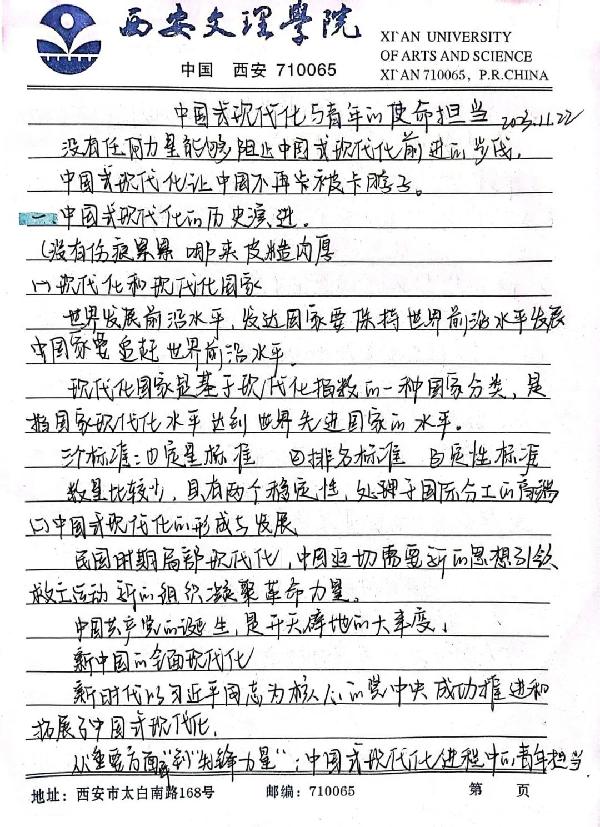 西安文理學院
XI'AN UNIVERSITY
OF ARTS AND SCIENCE
中国 西安 710065
XI'AN 710065, P.R.CHINA
中国式现代化与青年的使命担当 2023.11.22
没有任何力量能够阻止中国式现代化前进的步伐.
中国式现代化让中国不再卡被卡脖子。
一、中国式现代化的历史演进.
(没有伤痕累累 哪来皮糙肉厚
(一)现代化和现代化国家
世界发展前沿水平,发达国家要保持世界前沿水平发展
中国家要追赶世界前沿水平.
现代化国家是基于现代化指数的一种国家分类,是
指国家现代化水平达到世界先进国家的水平。
三个标准:①定量标准 ②排名标准 ③定性标准
数量比较少,具有两个稳定性,处理于国际分工的高端
(二)中国式现代化的形成与发展
民国时期局部现代化,中国迫切需要新的思想引领
救亡运动 新的组织凝聚革命力量。
中国共产党的诞生,是开天辟地的大事变.
新中国的全面现代化
新时代以习近平同志为核心的党中央成功推进和
拓展了中国式现代化.
从"重要方面"到"先锋力量":中国式现代化进程中的青年担当
地址:西安市太白南路168号 邮编:710065 第 页